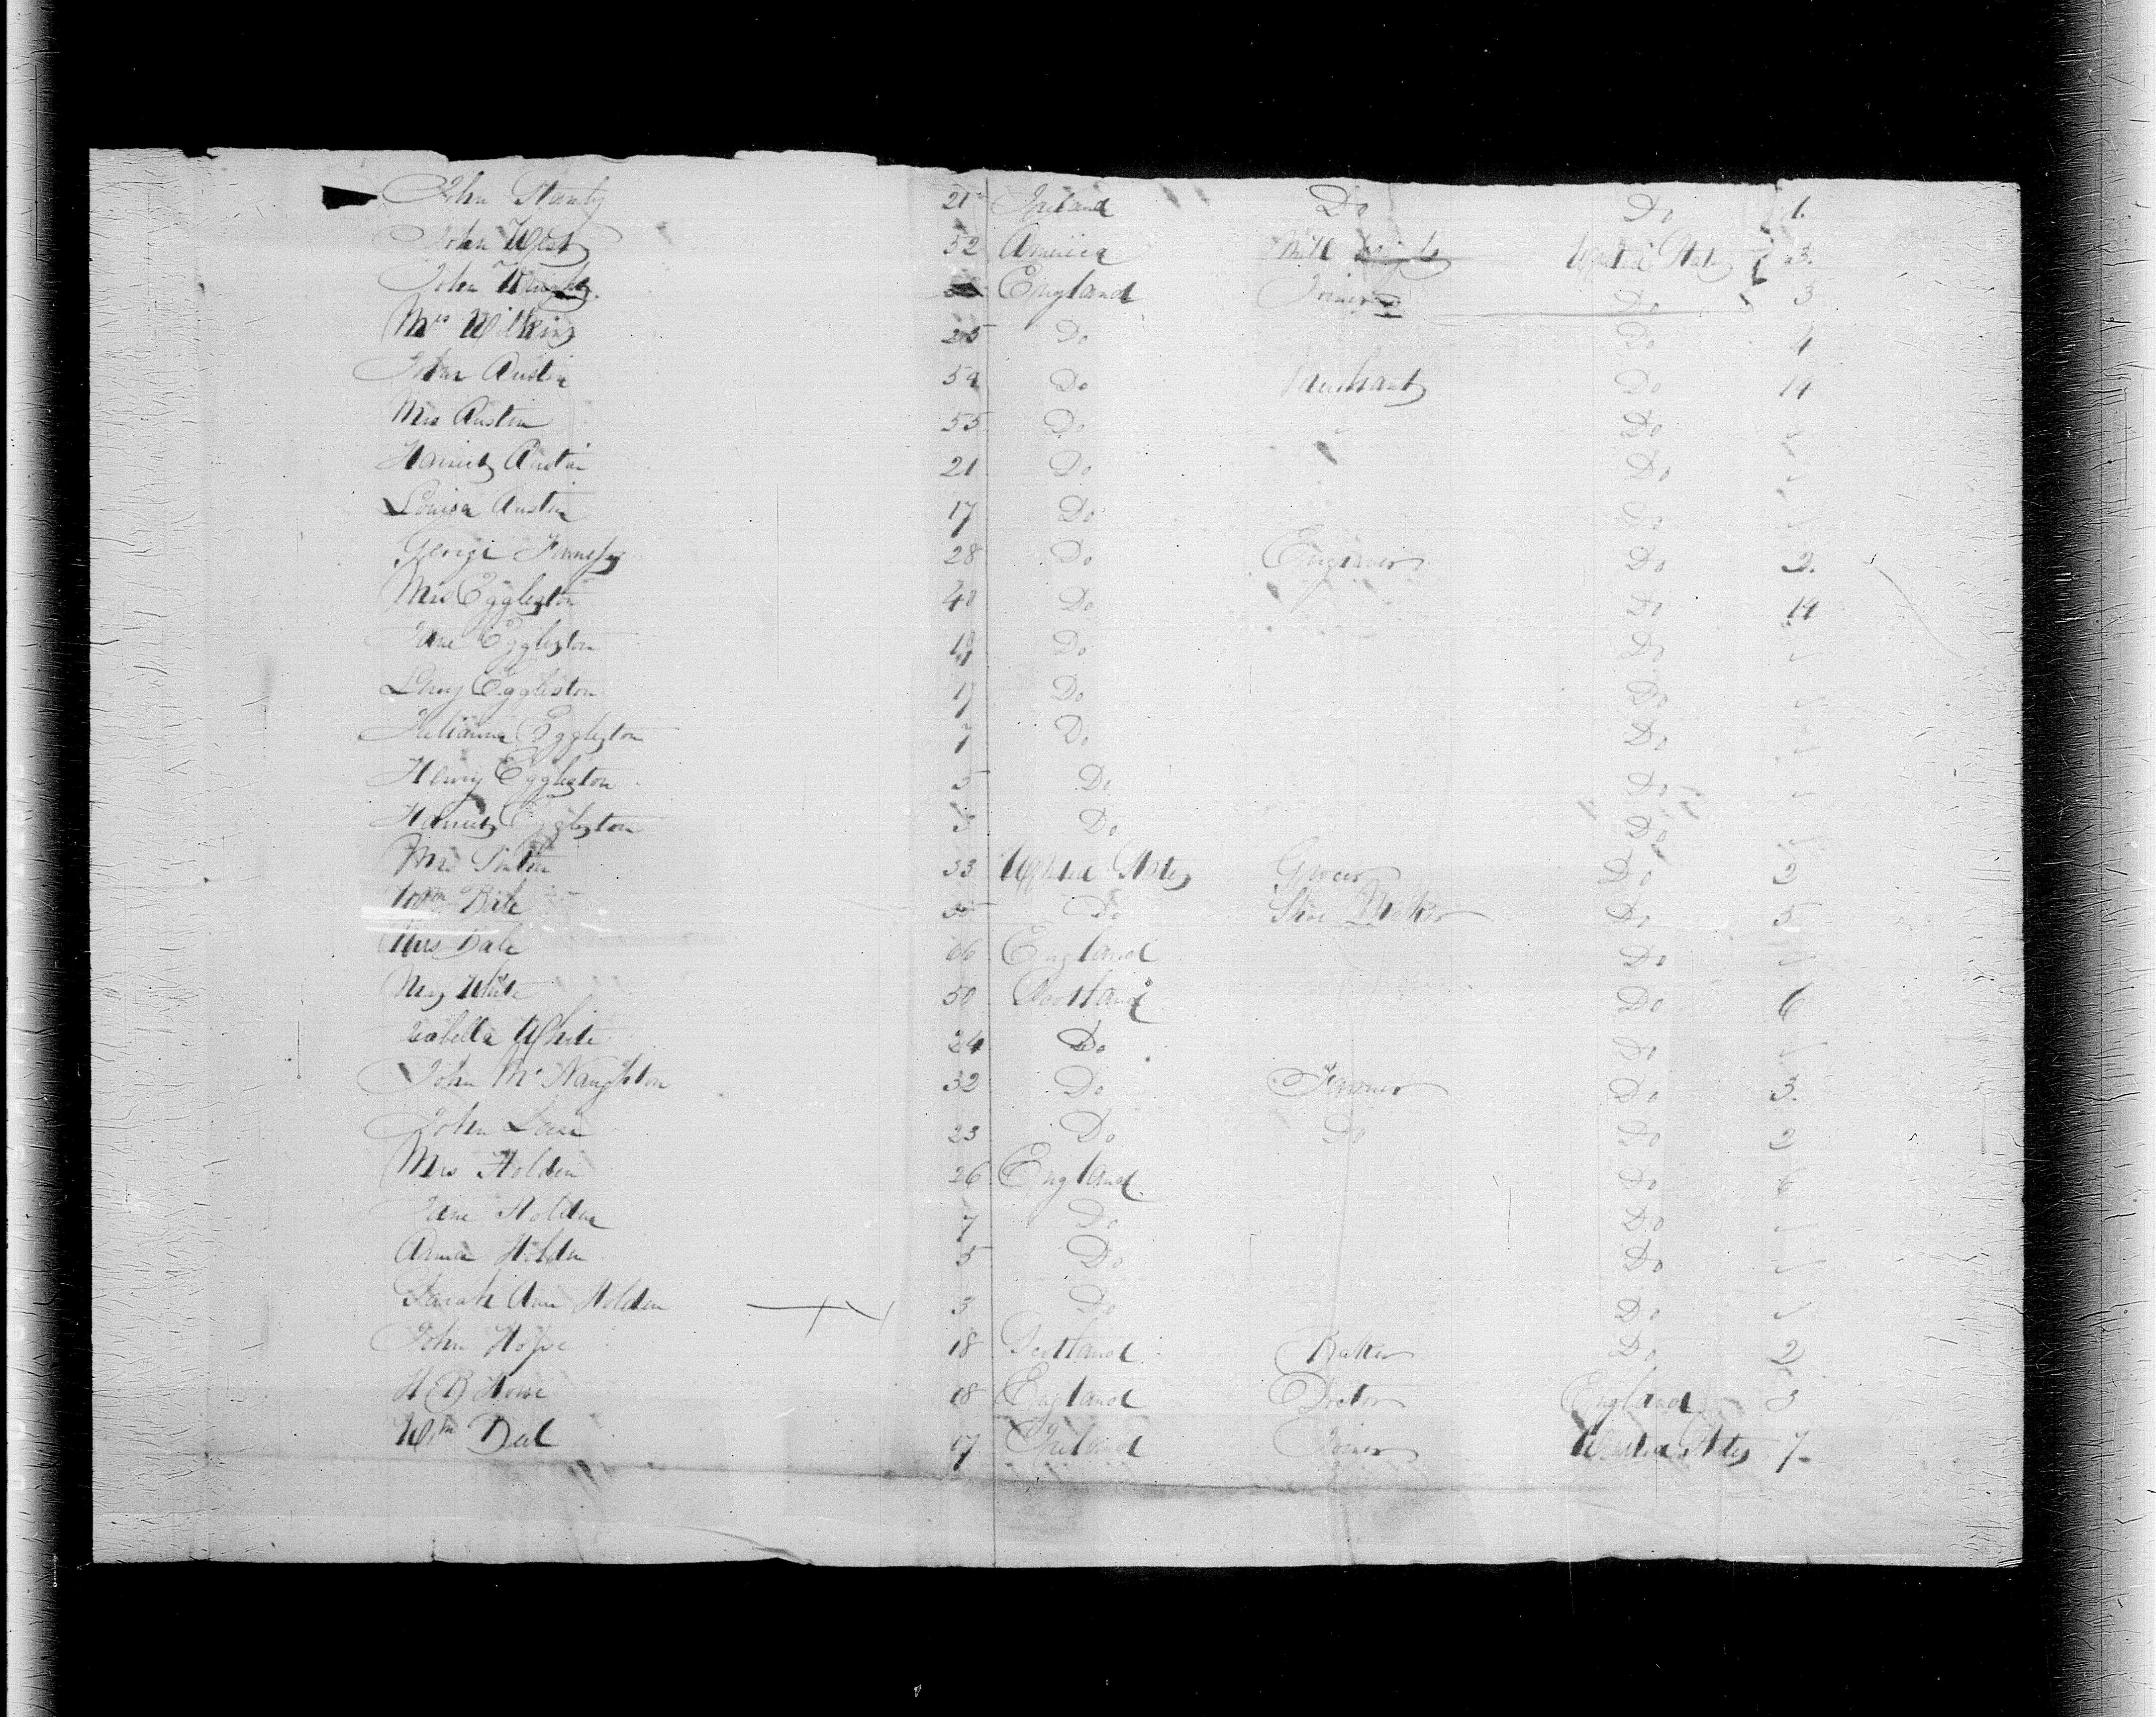 John 21 Ireland Do Do 1.
John West 52 America Mill United States 3.
John Wright England Joiner Do 3
Mrs Wilkins 25 Do Do 4
John Austin 54 Do Merchant Do 14
Mrs Austin 55 Do Do ✓
Harriet Austin 21 Do Do ✓
Louisa Austin 17 Do Do ✓
George 28 Do Engraver Do 2.
Mrs Eggleston 40 Do Do 14
Jane Eggleston 19 Do Do ✓
Lucy Eggleston 17 Do Do ✓
Eggleston 7 Do Do ✓
Henry Eggleston 5 Do Do ✓
Harriet Eggleston 3 Do Do ✓
33 United States Grocer Do 2
35 Do Shoe Maker Do 5
Mrs 66 England Do ✓
White 50 Scotland Do 6
Isabella White 24 Do Do ✓
John Mc Naughton 32 Do Farmer Do 3.
John 23 Do Do Do 2
Mrs Holden 26 England Do 6
Jane Holden 7 Do Do ✓
Anna Holden 5 Do Do ✓
Sarah Ann Holden 3 Do Do ✓
John Hope 18 Scotland Baker Do 2
H B Howe 18 England Doctor England 3
Wm 17 Ireland Joiner United States 7